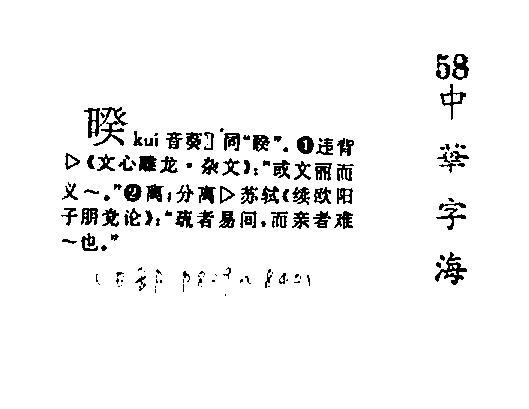 58
中華字海
暌 kui 音葵〕同“睽”。❶违背
▷《文心雕龙·杂文》：“或文丽而
义～。”❷离；分离▷苏轼《续欧阳
子朋党论》：“疏者易间，而亲者难
～也。”